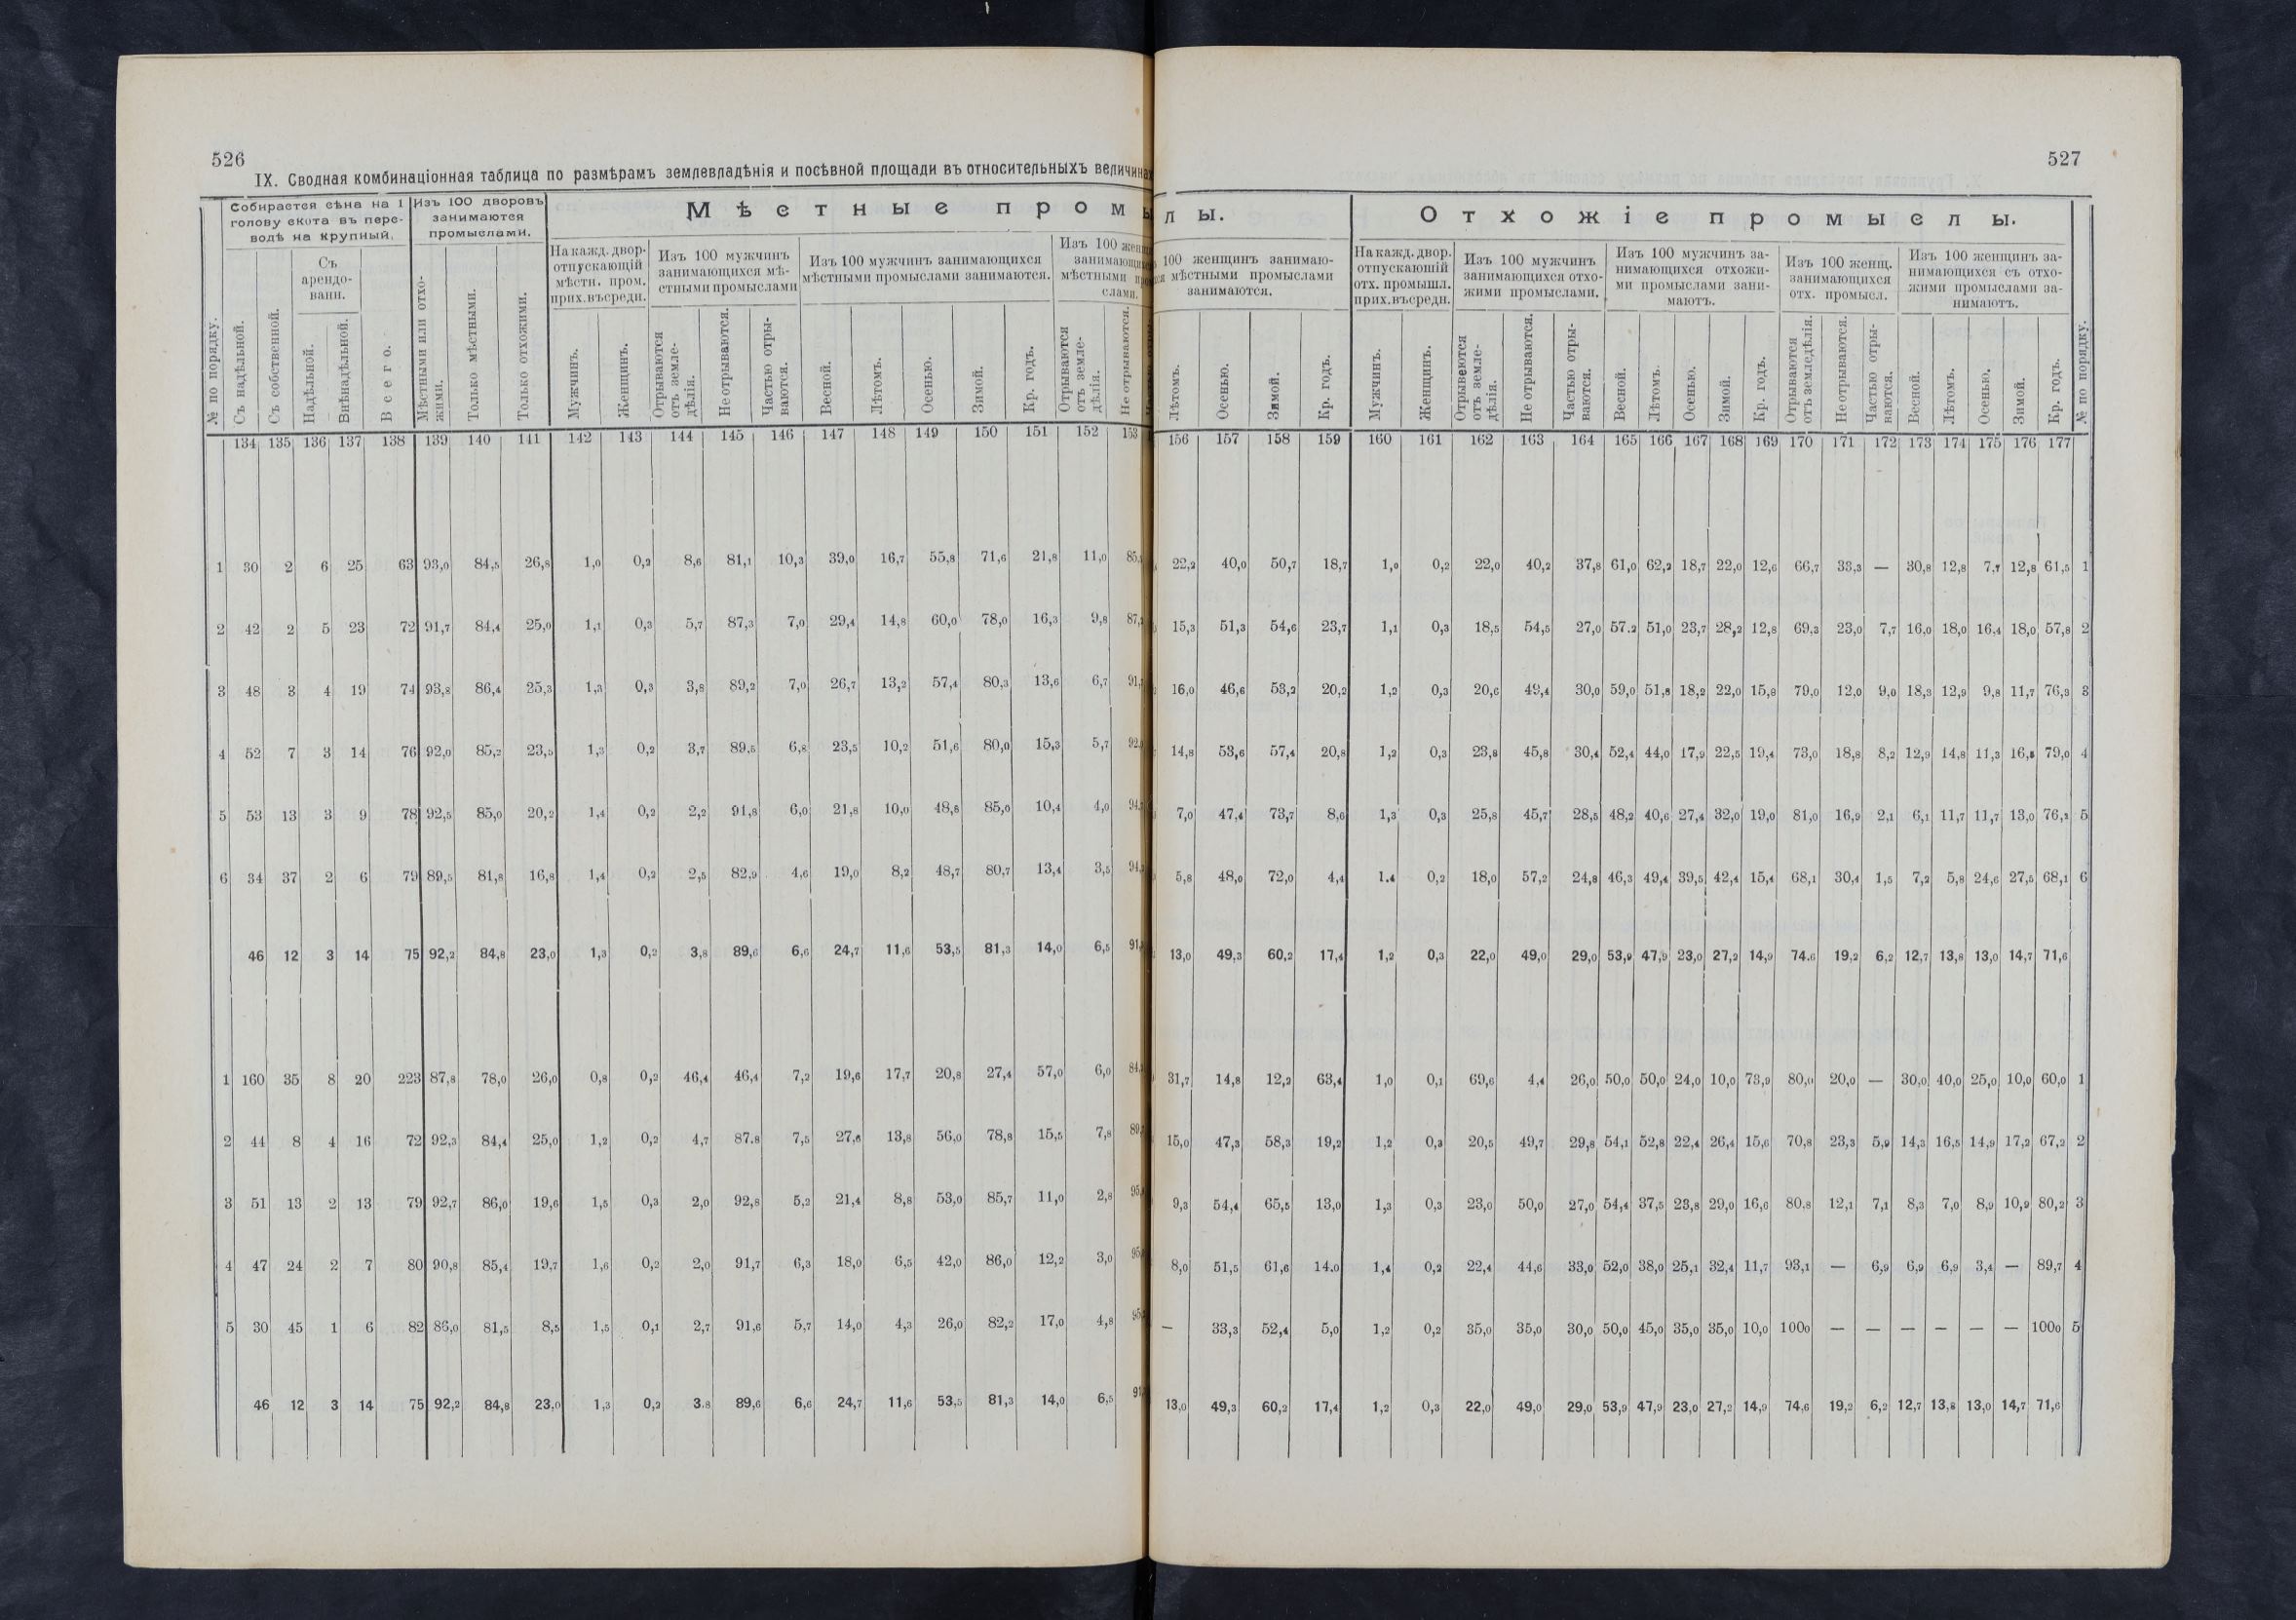 526
IX. Сводная комбинаціонная таблица по размѣрамъ землевладѣнія и посѣвной площади въ относительныхъ величинах
№ по порядку.
Собирается сѣна на 1 голову скота въ пере- водѣ на крупный.
Съ надѣльной.
Съ собственной.
Съ арендо- ванн.
Надѣльной.
Внѣнадѣльной.
Всего.
Изъ 100 дворовъ занимаются промыслами.
Мѣстными или отхо- жими.
Только мѣстными.
Только отхожими.
Мѣстные пром
На кажд. двор. отпускающій мѣстн. пром. прих. въ средн.
Мужчинъ.
Женщинъ.
Изъ 100 мужчинъ занимающихся мѣ- стными промыслами
Отрываются отъ земле- дѣлія.
Не отрываются.
Частью отры- ваются.
Изъ 100 мужчинъ занимающихся мѣстными промыслами занимаются.
Весной.
Лѣтомъ.
Осенью.
Зимой.
Кр. годъ.
Изъ 100 занимающи мѣстными слами.
Отрываются отъ земле- дѣлія.
Не отрываются.
134 135 136 137 138 139 140 141 142 143 144 145 146 147 148 149 150 151 152 153
1 30 2 6 25 63 93,0 84,5 26,8 1,0 0,2 8,6 81,1 10,3 39,0 16,7 55,8 71,6 21,8 11,0
2 42 2 5 23 72 91,7 84,4 25,0 1,1 0,3 5,7 87,3 7,0 29,4 14,8 60,0 78,0 16,3 9,8
3 48 3 4 19 74 93,8 86,4 25,3 1,3 0,3 3,8 89,2 7,0 26,7 13,2 57,4 80,3 13,6 6,7
4 52 7 3 14 76 92,0 85,2 23,5 1,3 0,2 3,7 89,5 6,8 23,5 10,2 51,6 80,0 15,3 5,7
5 53 13 3 9 78 92,5 85,0 20,2 1,4 0,2 2,2 91,8 6,0 21,8 10,0 48,8 85,0 10,4 4,0
6 34 37 2 6 79 89,5 81,8 16,8 1,4 0,2 2,5 82,9 4,6 19,0 8,2 48,7 80,7 13,4 3,5
46 12 3 14 75 92,2 84,8 23,0 1,3 0,2 3,8 89,6 6,6 24,7 11,6 53,5 81,3 14,0 6,5
1 160 35 8 20 223 87,8 78,0 26,0 0,8 0,2 46,4 46,4 7,2 19,6 17,7 20,8 27,4 57,0 6,0
2 44 8 4 16 72 92,3 84,4 25,0 1,2 0,2 4,7 87.8 7,5 27,6 13,8 56,0 78,8 15,5 7,8
3 51 13 2 13 79 92,7 86,0 19,6 1,5 0,3 2,0 92,8 5,2 21,4 8,8 53,0 85,7 11,0 2,8
4 47 24 2 7 80 90,8 85,4 19,7 1,6 0,2 2,0 91,7 6,3 18,0 6,5 42,0 86,0 12,2 3,0
5 30 45 1 6 82 86,0 81,5 8,5 1,5 0,1 2,7 91,6 5,7 14,0 4,3 26,0 82,2 17,0 4,8
46 12 3 14 75 92,2 84,8 23,0 1,3 0,2 3.8 89,6 6,6 24,7 11,6 53,5 81,3 14,0 6,5
527
лы.
100 женщинъ занимаю- мѣстными промыслами занимаются.
Лѣтомъ.
Осенью.
Зимой.
Кр. годъ.
Отхожіе промыслы.
На кажд. двор. отпускающій отх. промышл. прих. въ средн.
Мужчинъ.
Женщинъ.
Изъ 100 мужчинъ занимающихся отхо- жими промыслами.
Отрываются отъ земле- дѣлія.
Не отрываются.
Частью отры- ваются.
Изъ 100 мужчинъ за- нимающихся отхожи- ми промыслами зани- маютъ.
Весной.
Лѣтомъ.
Осенью.
Зимой.
Кр. годъ.
Изъ 100 женщ. занимающихся отх. промысл.
Отрываются отъ земледѣлія.
Не отрываются.
Частью отры- ваются.
Изъ 100 женщинъ за- нимающихся съ отхо- жими промыслами за- нимаютъ.
Весной.
Лѣтомъ.
Осенью.
Зимой.
Кр. годъ.
№ по порядку.
156 157 158 159 160 161 162 163 164 165 166 167 168 169 170 171 172 173 174 175 176 177
22,2 40,0 50,7 18,7 1,0 0,2 22,0 40,2 37,8 61,0 62,2 18,7 22,0 12,6 66,7 33,3 — 30,8 12,8 7,7 12,8 61,5 1
15,3 51,3 54,6 23,7 1,1 0,3 18,5 54,5 27,0 57.2 51,0 23,7 28,2 12,8 69,3 23,0 7,7 16,0 18,0 16,4 18,0 57,8 2
16,0 46,6 53,2 20,2 1,2 0,3 20,6 49,4 30,0 59,0 51,8 18,2 22,0 15,8 79,0 12,0 9,0 18,3 12,9 9,8 11,7 76,3 3
14,8 53,6 57,4 20,8 1,2 0,3 23,8 45,8 30,4 52,4 44,0 17,9 22,5 19,4 73,0 18,8 8,2 12,9 14,8 11,3 16,1 79,0 4
7,0 47,4 73,7 8,6 1,3 0,3 25,8 45,7 28,5 48,2 40,6 27,4 32,0 19,0 81,0 16,9 2,1 6,1 11,7 11,7 13,0 76,2 5
5,8 48,0 72,0 4,4 1.4 0,2 18,0 57,2 24,8 46,3 49,4 39,5 42,4 15,4 68,1 30,4 1,5 7,2 5,8 24,6 27,5 68,1 6
13,0 49,3 60,2 17,4 1,2 0,3 22,0 49,0 29,0 53,9 47,9 23,0 27,2 14,9 74.6 19,2 6,2 12,7 13,8 13,0 14,7 71,6
31,7 14,8 12,2 63,4 1,0 0,1 69,6 4,4 26,0 50,0 50,0 24,0 10,0 73,9 80,0 20,0 — 30,0 40,0 25,0 10,0 60,0 1
15,0 47,3 58,3 19,2 1,2 0,3 20,5 49,7 29,8 54,1 52,8 22,4 26,4 15,6 70,8 23,3 5,9 14,3 16,5 14,9 17,2 67,2 2
9,3 54,4 65,5 13,0 1,3 0,3 23,0 50,0 27,0 54,4 37,5 23,8 29,0 16,6 80,8 12,1 7,1 8,3 7,0 8,9 10,9 80,2 3
8,0 51,5 61,6 14.0 1,4 0,2 22,4 44,6 33,0 52,0 38,0 25,1 32,4 11,7 93,1 — 6,9 6,9 6,9 3,4 — 89,7 4
— 33,3 52,4 5,0 1,2 0,2 35,0 35,0 30,0 50,0 45,0 35,0 35,0 10,0 100o — — — — — — 100o 5
13,0 49,3 60,2 17,4 1,2 0,3 22,0 49,0 29,0 53,9 47,9 23,0 27,2 14,9 74,6 19,2 6,2 12,7 13,8 13,0 14,7 71,6